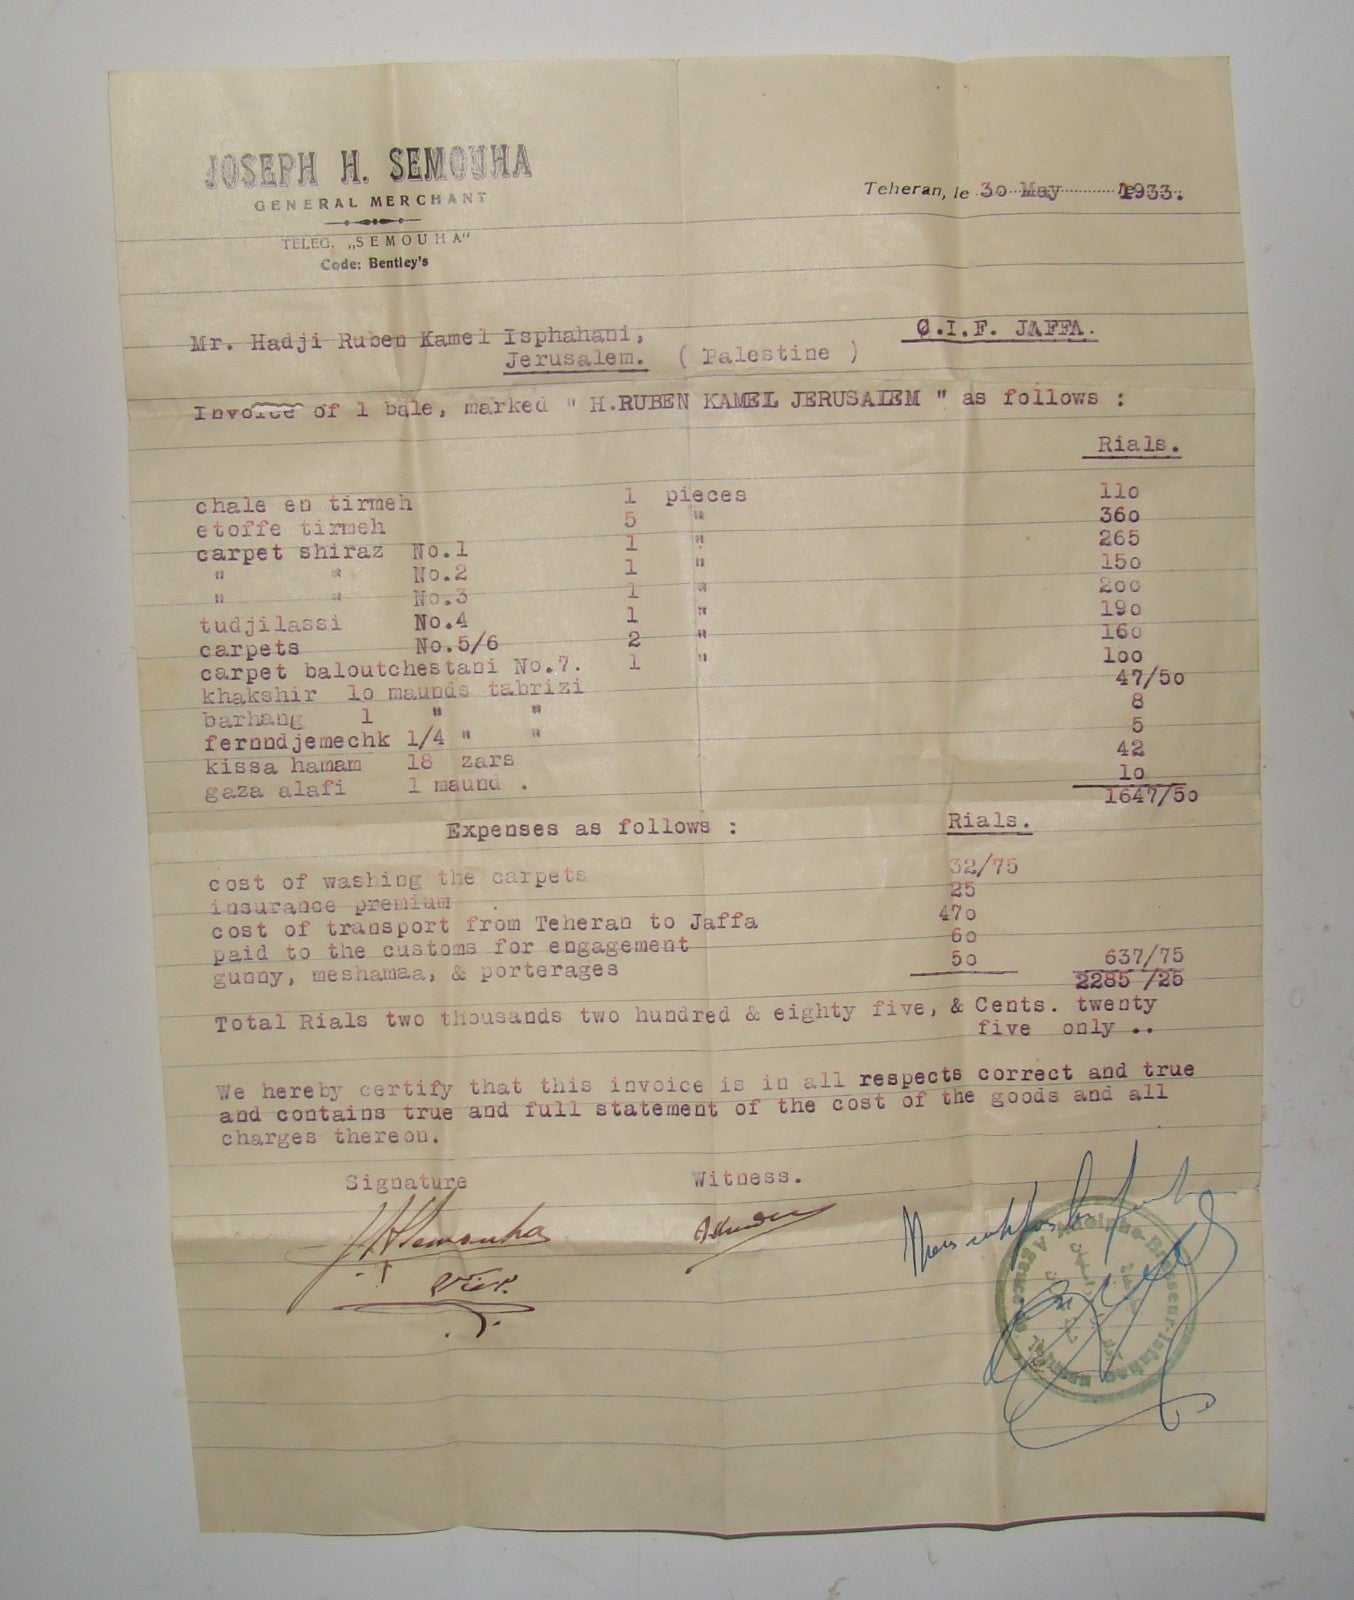 JOSEPH H. SEMOUHA
GENERAL MERCHANT
TELEG. „SEMOUHA"
Code: Bentley's
Teheran, le 30 May 1933.
Mr. Hadji Ruben Kamel Isphahani,
Jerusalem. ( Palestine )
C.I.F. JAFFA.
Invoice of 1 bale, marked " H.RUBEN KAMEL JERUSALEM " as follows :
Rials.
chale en tirmeh 1 pieces 110
etoffe tirmeh 5 " 360
carpet shiraz No.1 1 " 265
" " No.2 1 " 150
" " No.3 1 " 200
tudjilassi No.4 1 " 190
carpets No.5/6 2 " 160
carpet baloutchestani No.7. 1 " 100
khakshir 10 maunds tabrizi 47/50
barhang 1 " " 8
fernndjemechk 1/4 " " 5
kissa hamam 18 zars 42
gaza alafi 1 maund . 10
1647/50
Expenses as follows : Rials.
cost of washing the carpets 32/75
insurance premium . 25
cost of transport from Teheran to Jaffa 470
paid to the customs for engagement 60
gunny, meshamaa, & porterages 50 637/75
2285 /25
Total Rials two thousands two hundred & eighty five, & Cents. twenty
five only ..
We hereby certify that this invoice is in all respects correct and true
and contains true and full statement of the cost of the goods and all
charges thereon.
Signature Witness.
J H Semouha